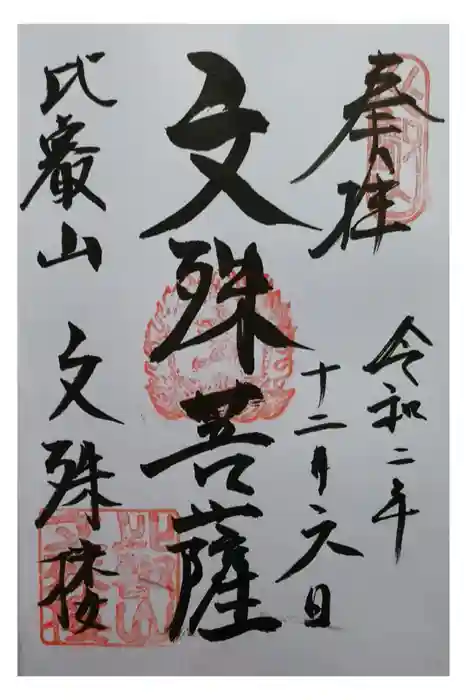 奉拝
令和二年
十二月六日
文殊菩薩
比叡山
文殊楼